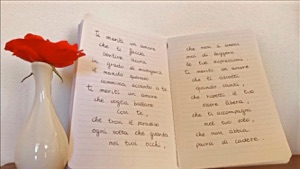 Ti meriti un amore
che ti faccia
sentire sicura
in grado di mangiarti
il mondo quando
cammina accanto a te.
Ti meriti un amore
che voglia ballare
con te,
che trovi il paradiso
ogni volta che guarda
nei tuoi occhi,
che non si annoi
mai di leggere
le tue espressioni.
Ti meriti un amore
che ti ascolti
quando canti,
che rispetti il tuo
essere libera,
che ti accompagni
nel tuo volo,
che non abbia
paura di cadere.